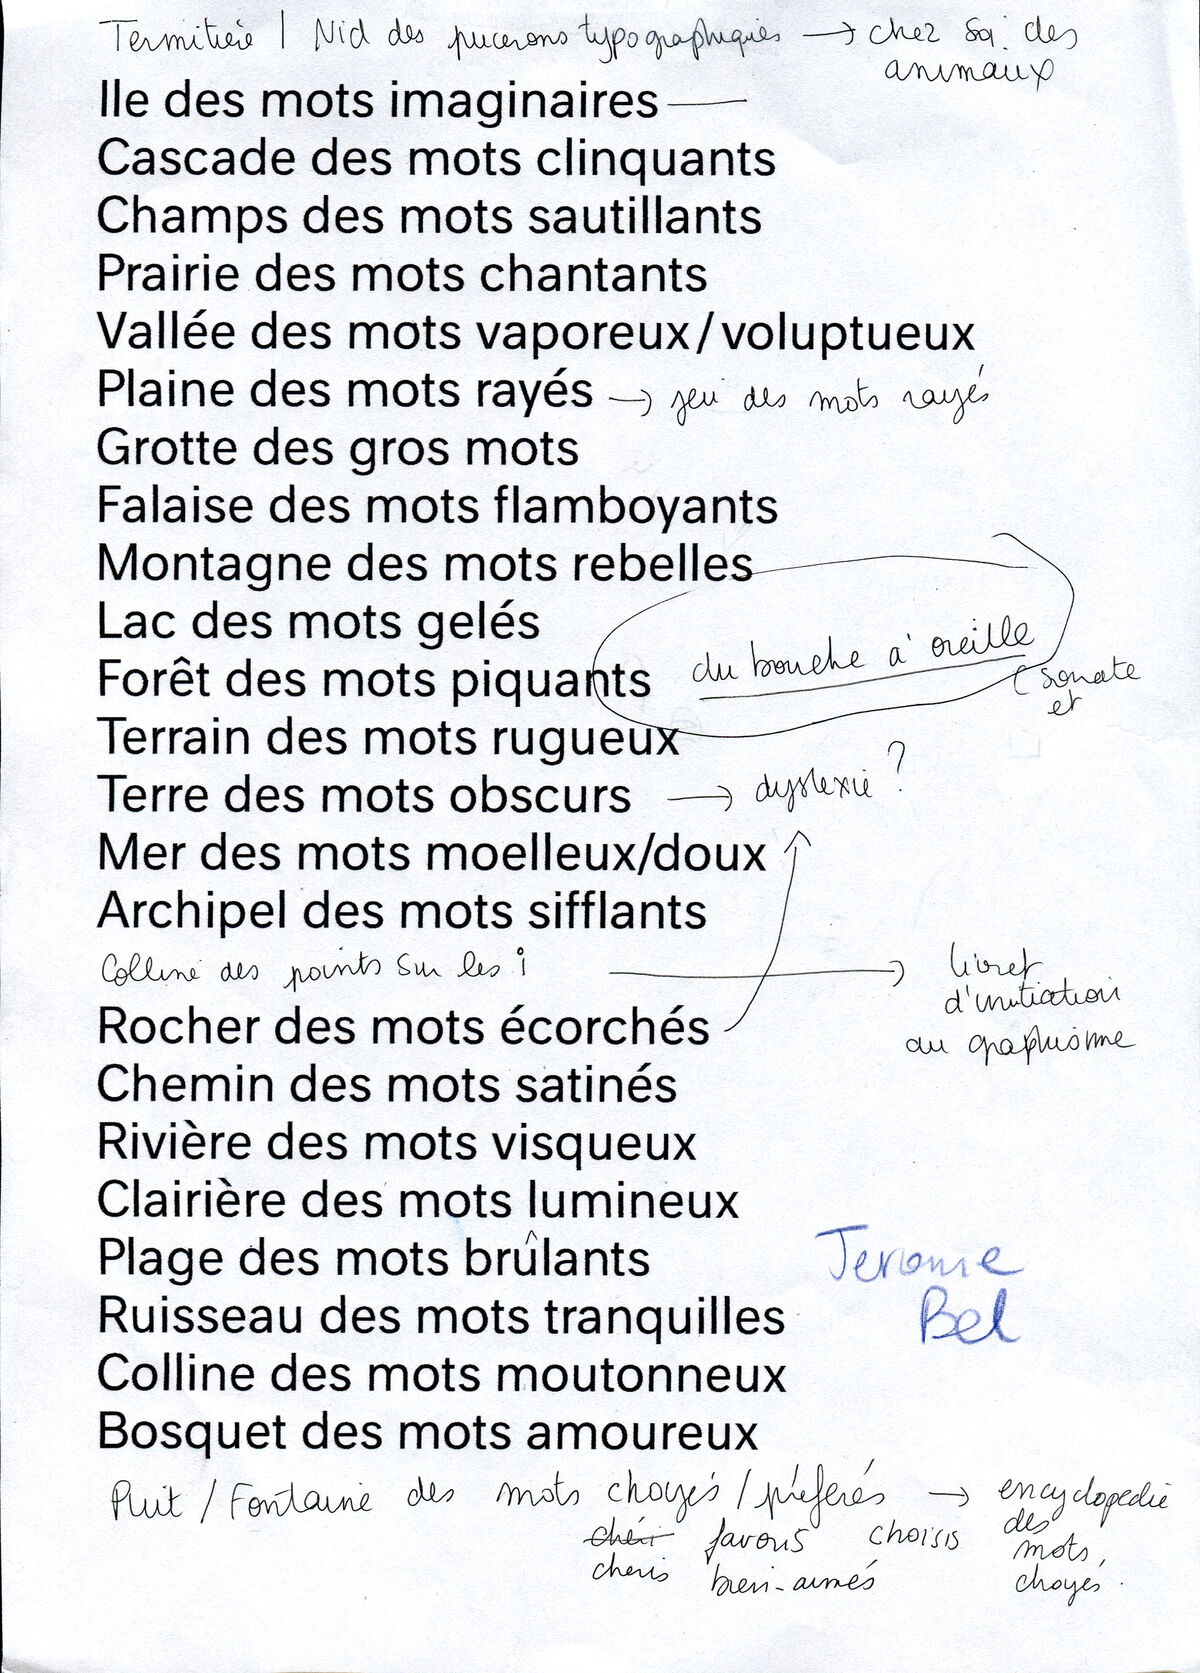 Termitière / Nid des pucerons typographiques → chez soi des
animaux
Ile des mots imaginaires —
Cascade des mots clinquants
Champs des mots sautillants
Prairie des mots chantants
Vallée des mots vaporeux/voluptueux
Plaine des mots rayés → jeu des mots rayés
Grotte des gros mots
Falaise des mots flamboyants
Montagne des mots rebelles
Lac des mots gelés
du bouche à oreille
Forêt des mots piquants
(sonate
et
Terrain des mots rugueux
Terre des mots obscurs → dyslexie ?
Mer des mots moelleux/doux
Archipel des mots sifflants
Colline des points sur les i → livret
d'initiation
au graphisme
Rocher des mots écorchés
Chemin des mots satinés
Rivière des mots visqueux
Clairière des mots lumineux
Plage des mots brûlants
Jerome
Bel
Ruisseau des mots tranquilles
Colline des mots moutonneux
Bosquet des mots amoureux
Puit / Fontaine des mots choyés / préférés → encyclopedie
des
chéri favoris choisis mots
cheris bien-aimés choyés.